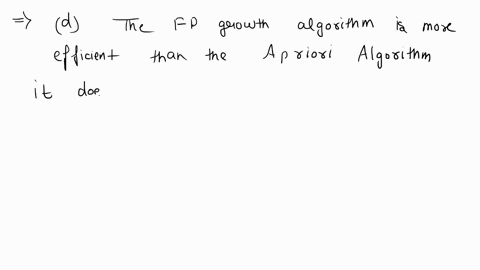 ⇒ (d) The FP growth algorithm is more
efficient than the Apriori Algorithm
it doe